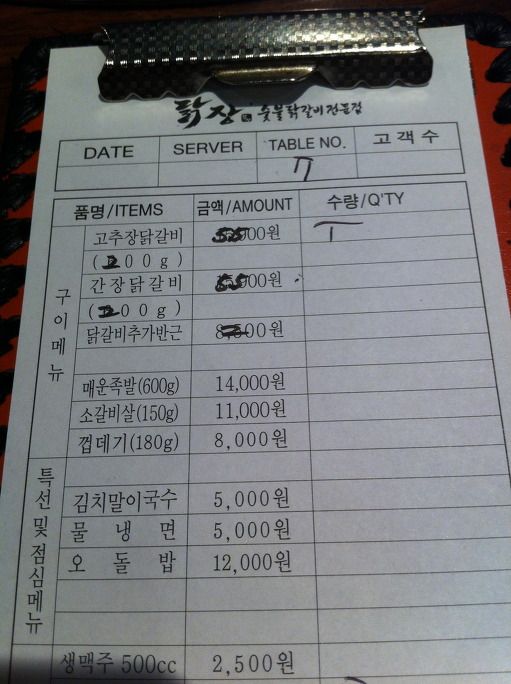 닭장 숯불닭갈비전문점
DATE SERVER TABLE NO. 고객수
7
품명/ITEMS 금액/AMOUNT 수량/Q'TY
구이메뉴
고추장닭갈비 00원
( 00g)
간장닭갈비 00원
( 00g)
닭갈비추가반근 00원
매운족발(600g) 14,000원
소갈비살(150g) 11,000원
껍데기(180g) 8,000원
특선 및 점심메뉴
김치말이국수 5,000원
물냉면 5,000원
오돌밥 12,000원
생맥주 500cc 2,500원